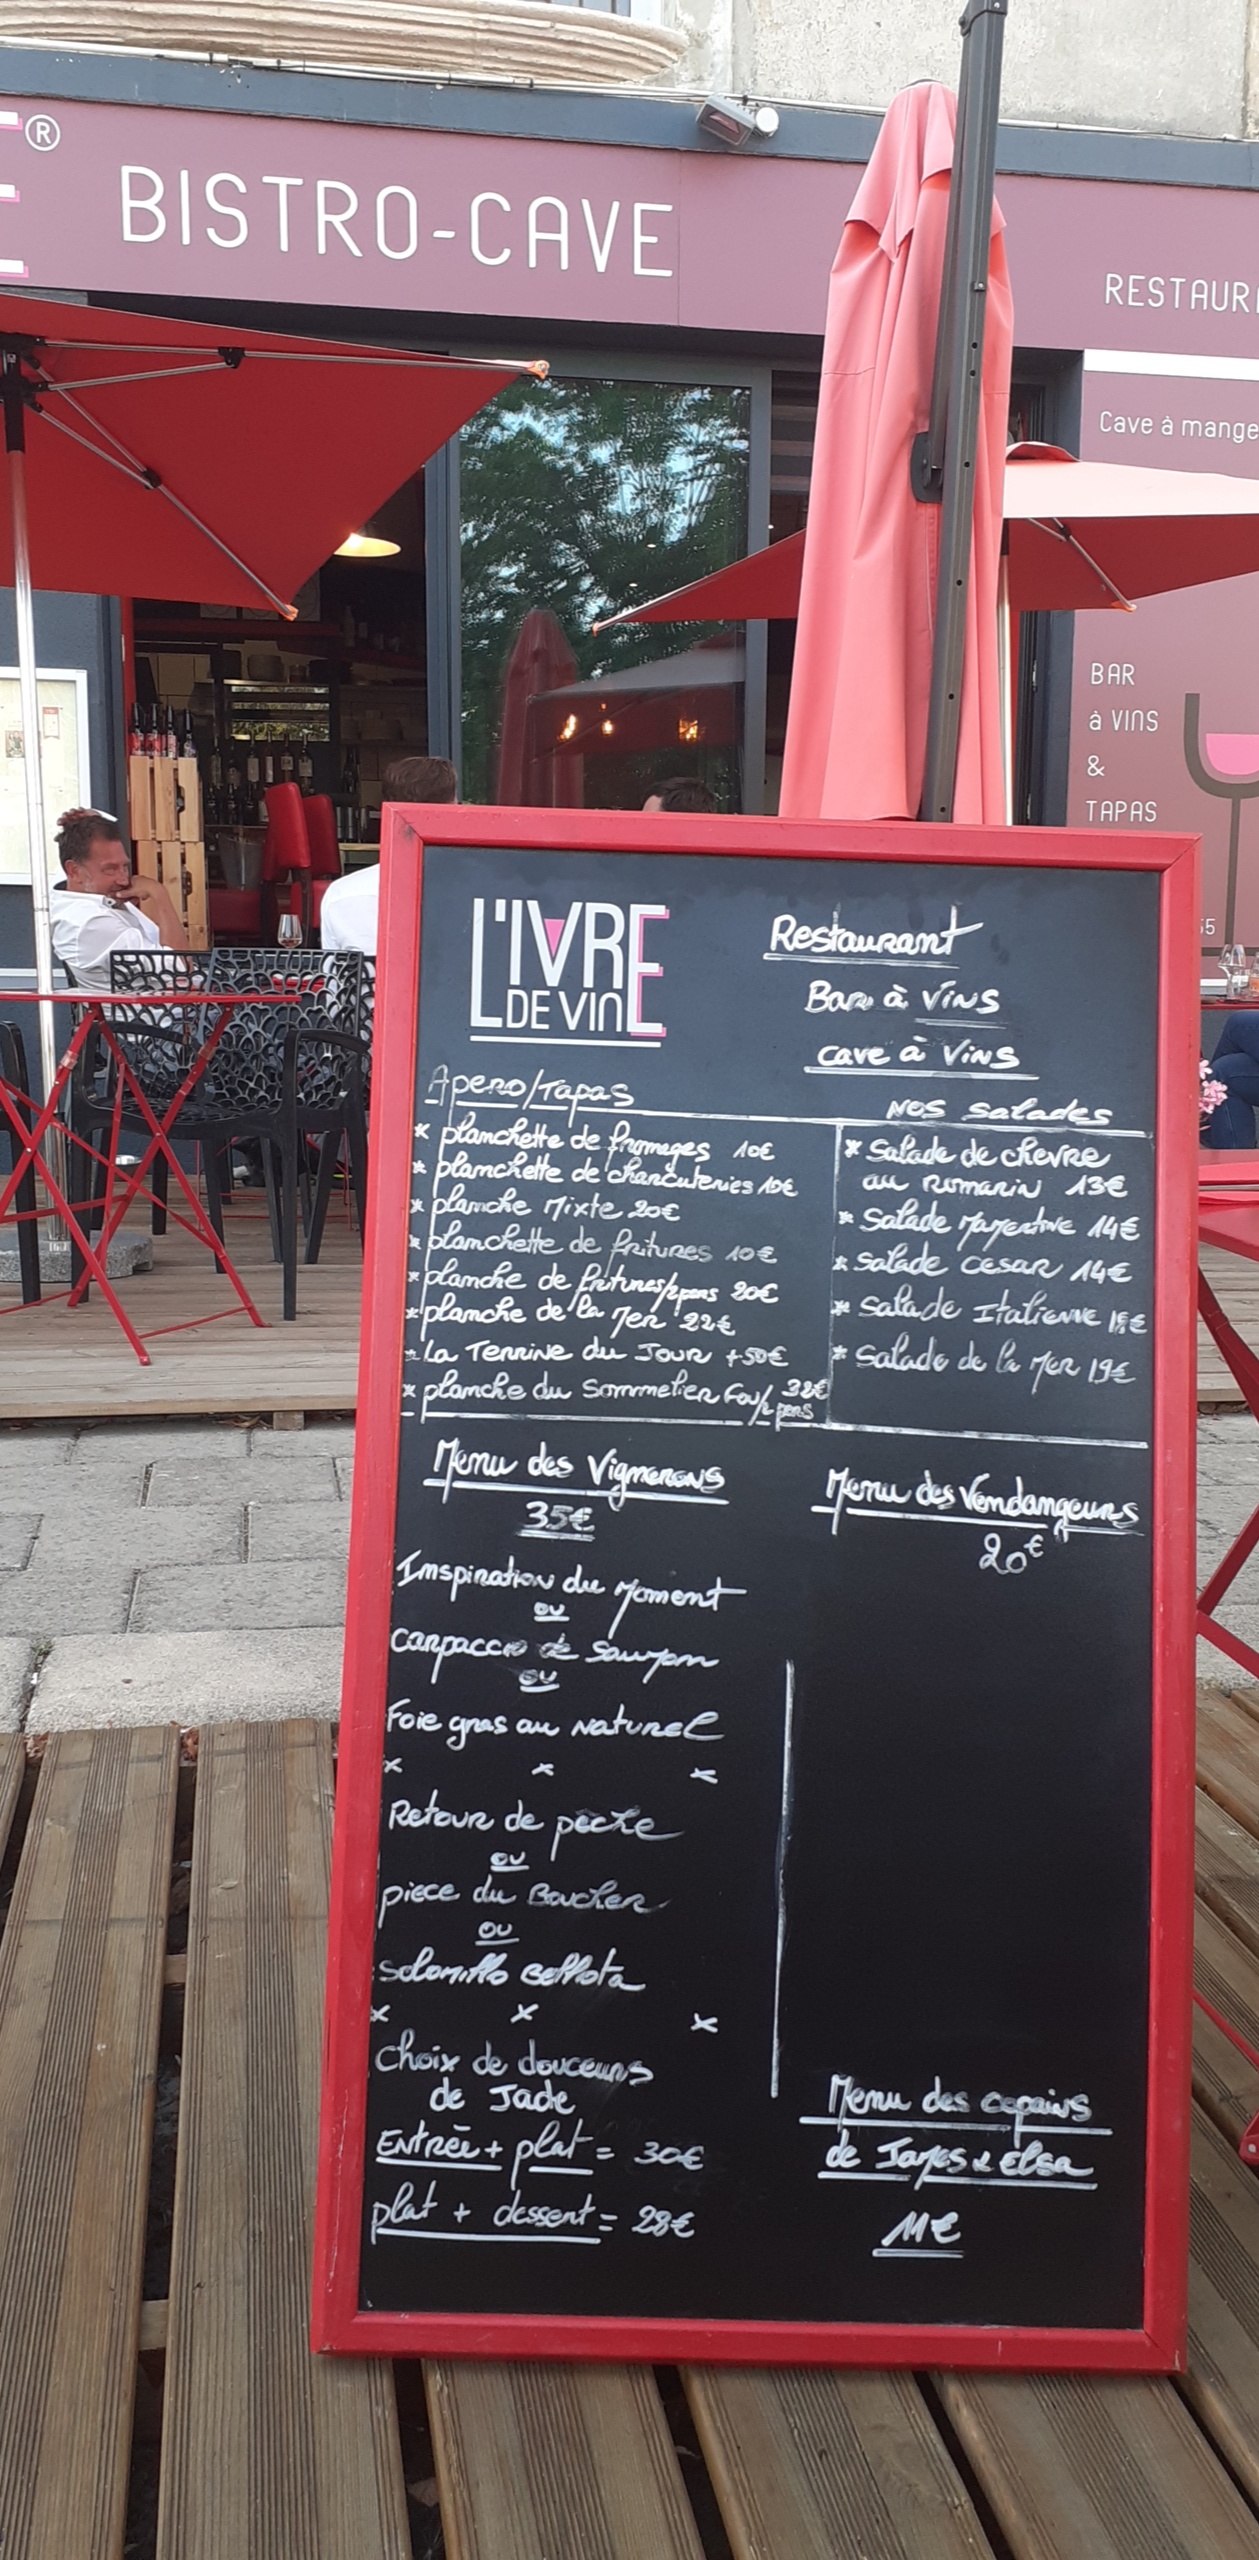 ®
E BISTRO-CAVE
RESTAUR
Cave à mange
BAR
à VINS
&
TAPAS
55
L'IVRE
DE VIN
Restaurant
Bar à Vins
cave à Vins
Apero/Tapas
* planchette de fromages 10€
* planchette de charcuteries 10€
* planche Mixte 20€
* planchette de fritures 10€
* planche de fritures/2pers 20€
* planche de la Mer 22€
* La Terrine du Jour +50€
* planche du Sommelier Fou/2 pers 32€
Nos Salades
* Salade de chevre
au Romarin 13€
* Salade 14€
* Salade Cesar 14€
* Salade Italienne
* Salade de la Mer 19€
Menu des Vignerons
35€
Inspiration du Moment
ou
Carpaccio de Saumon
ou
Foie gras au Naturel
x x x
Retour de pêche
ou
piece du Boucher
ou
Solomillo Bellota
x x x
Choix de douceurs
de Jade
Entrée + plat = 30€
plat + dessert = 28€
Menu des Vendangeurs
20€
Menu des copains
de James & Elsa
11€